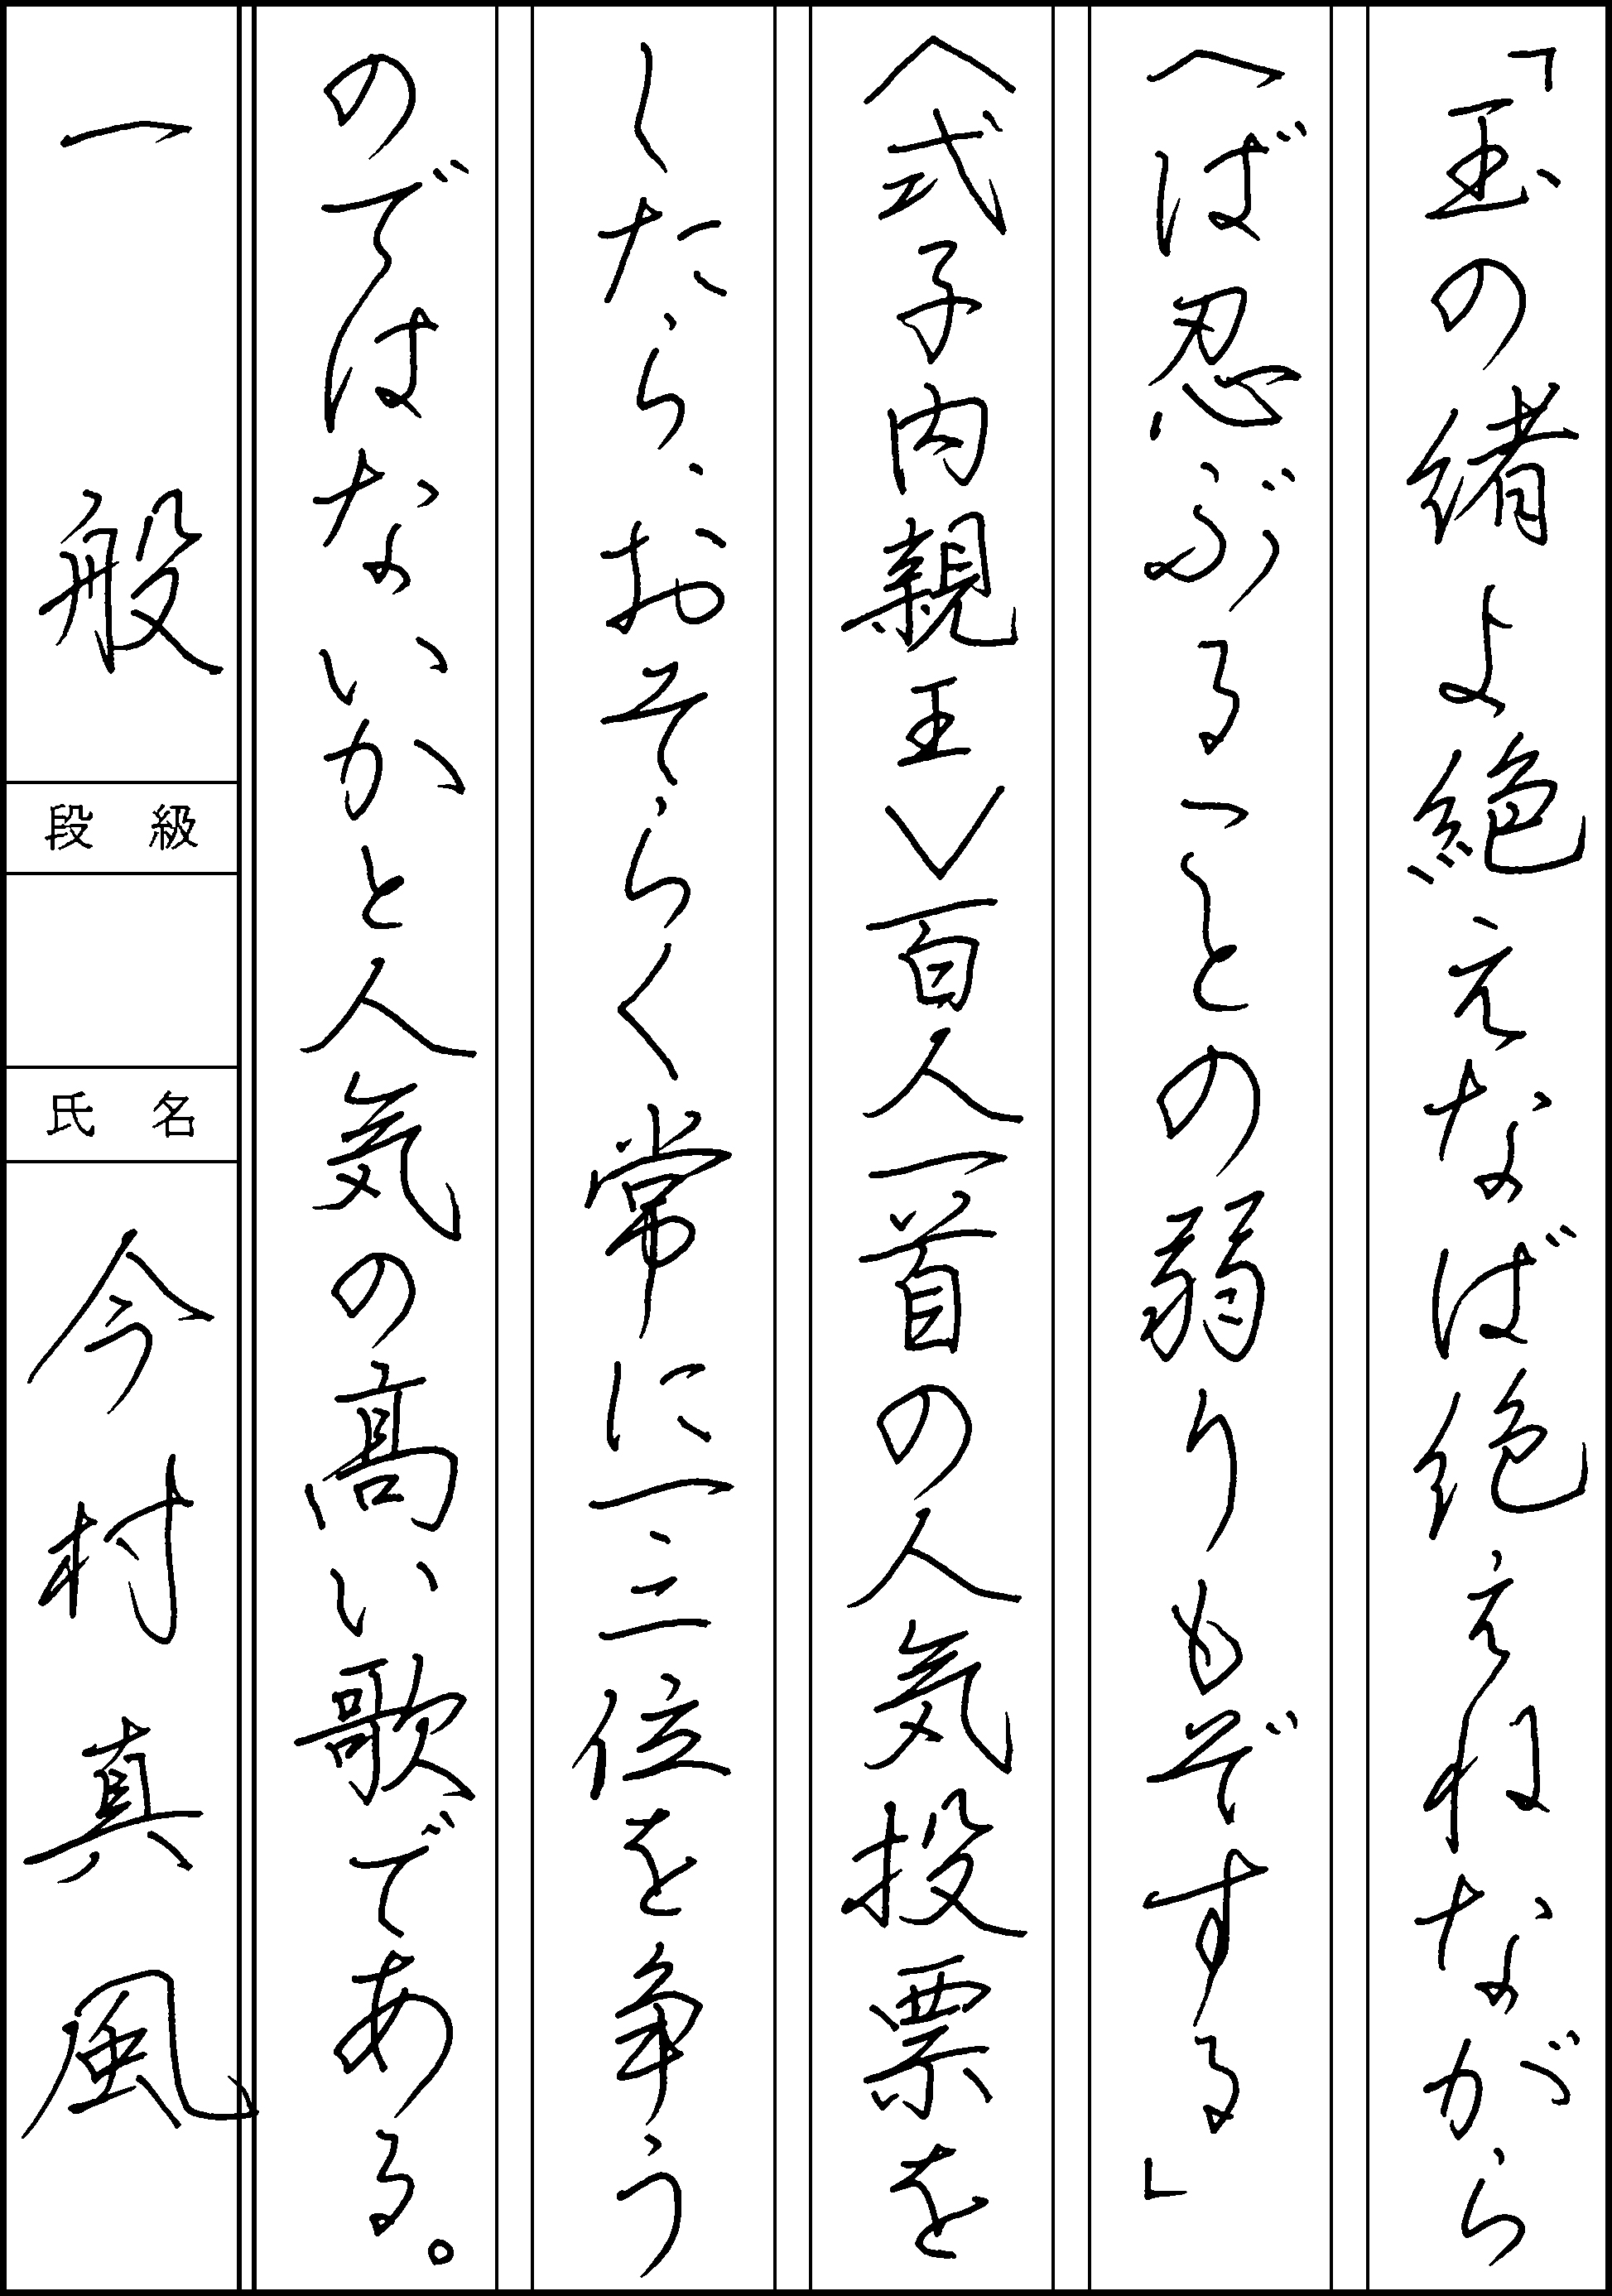 「玉の緒よ絶えなば絶えねながら
へば忍ぶることの弱りもぞする」
〈式子内親王〉百人一首の人気投票を
したら、おそらく常に一、二位を争う
のではないかと人気の高い歌である。
一般
段級
氏名
今村真風